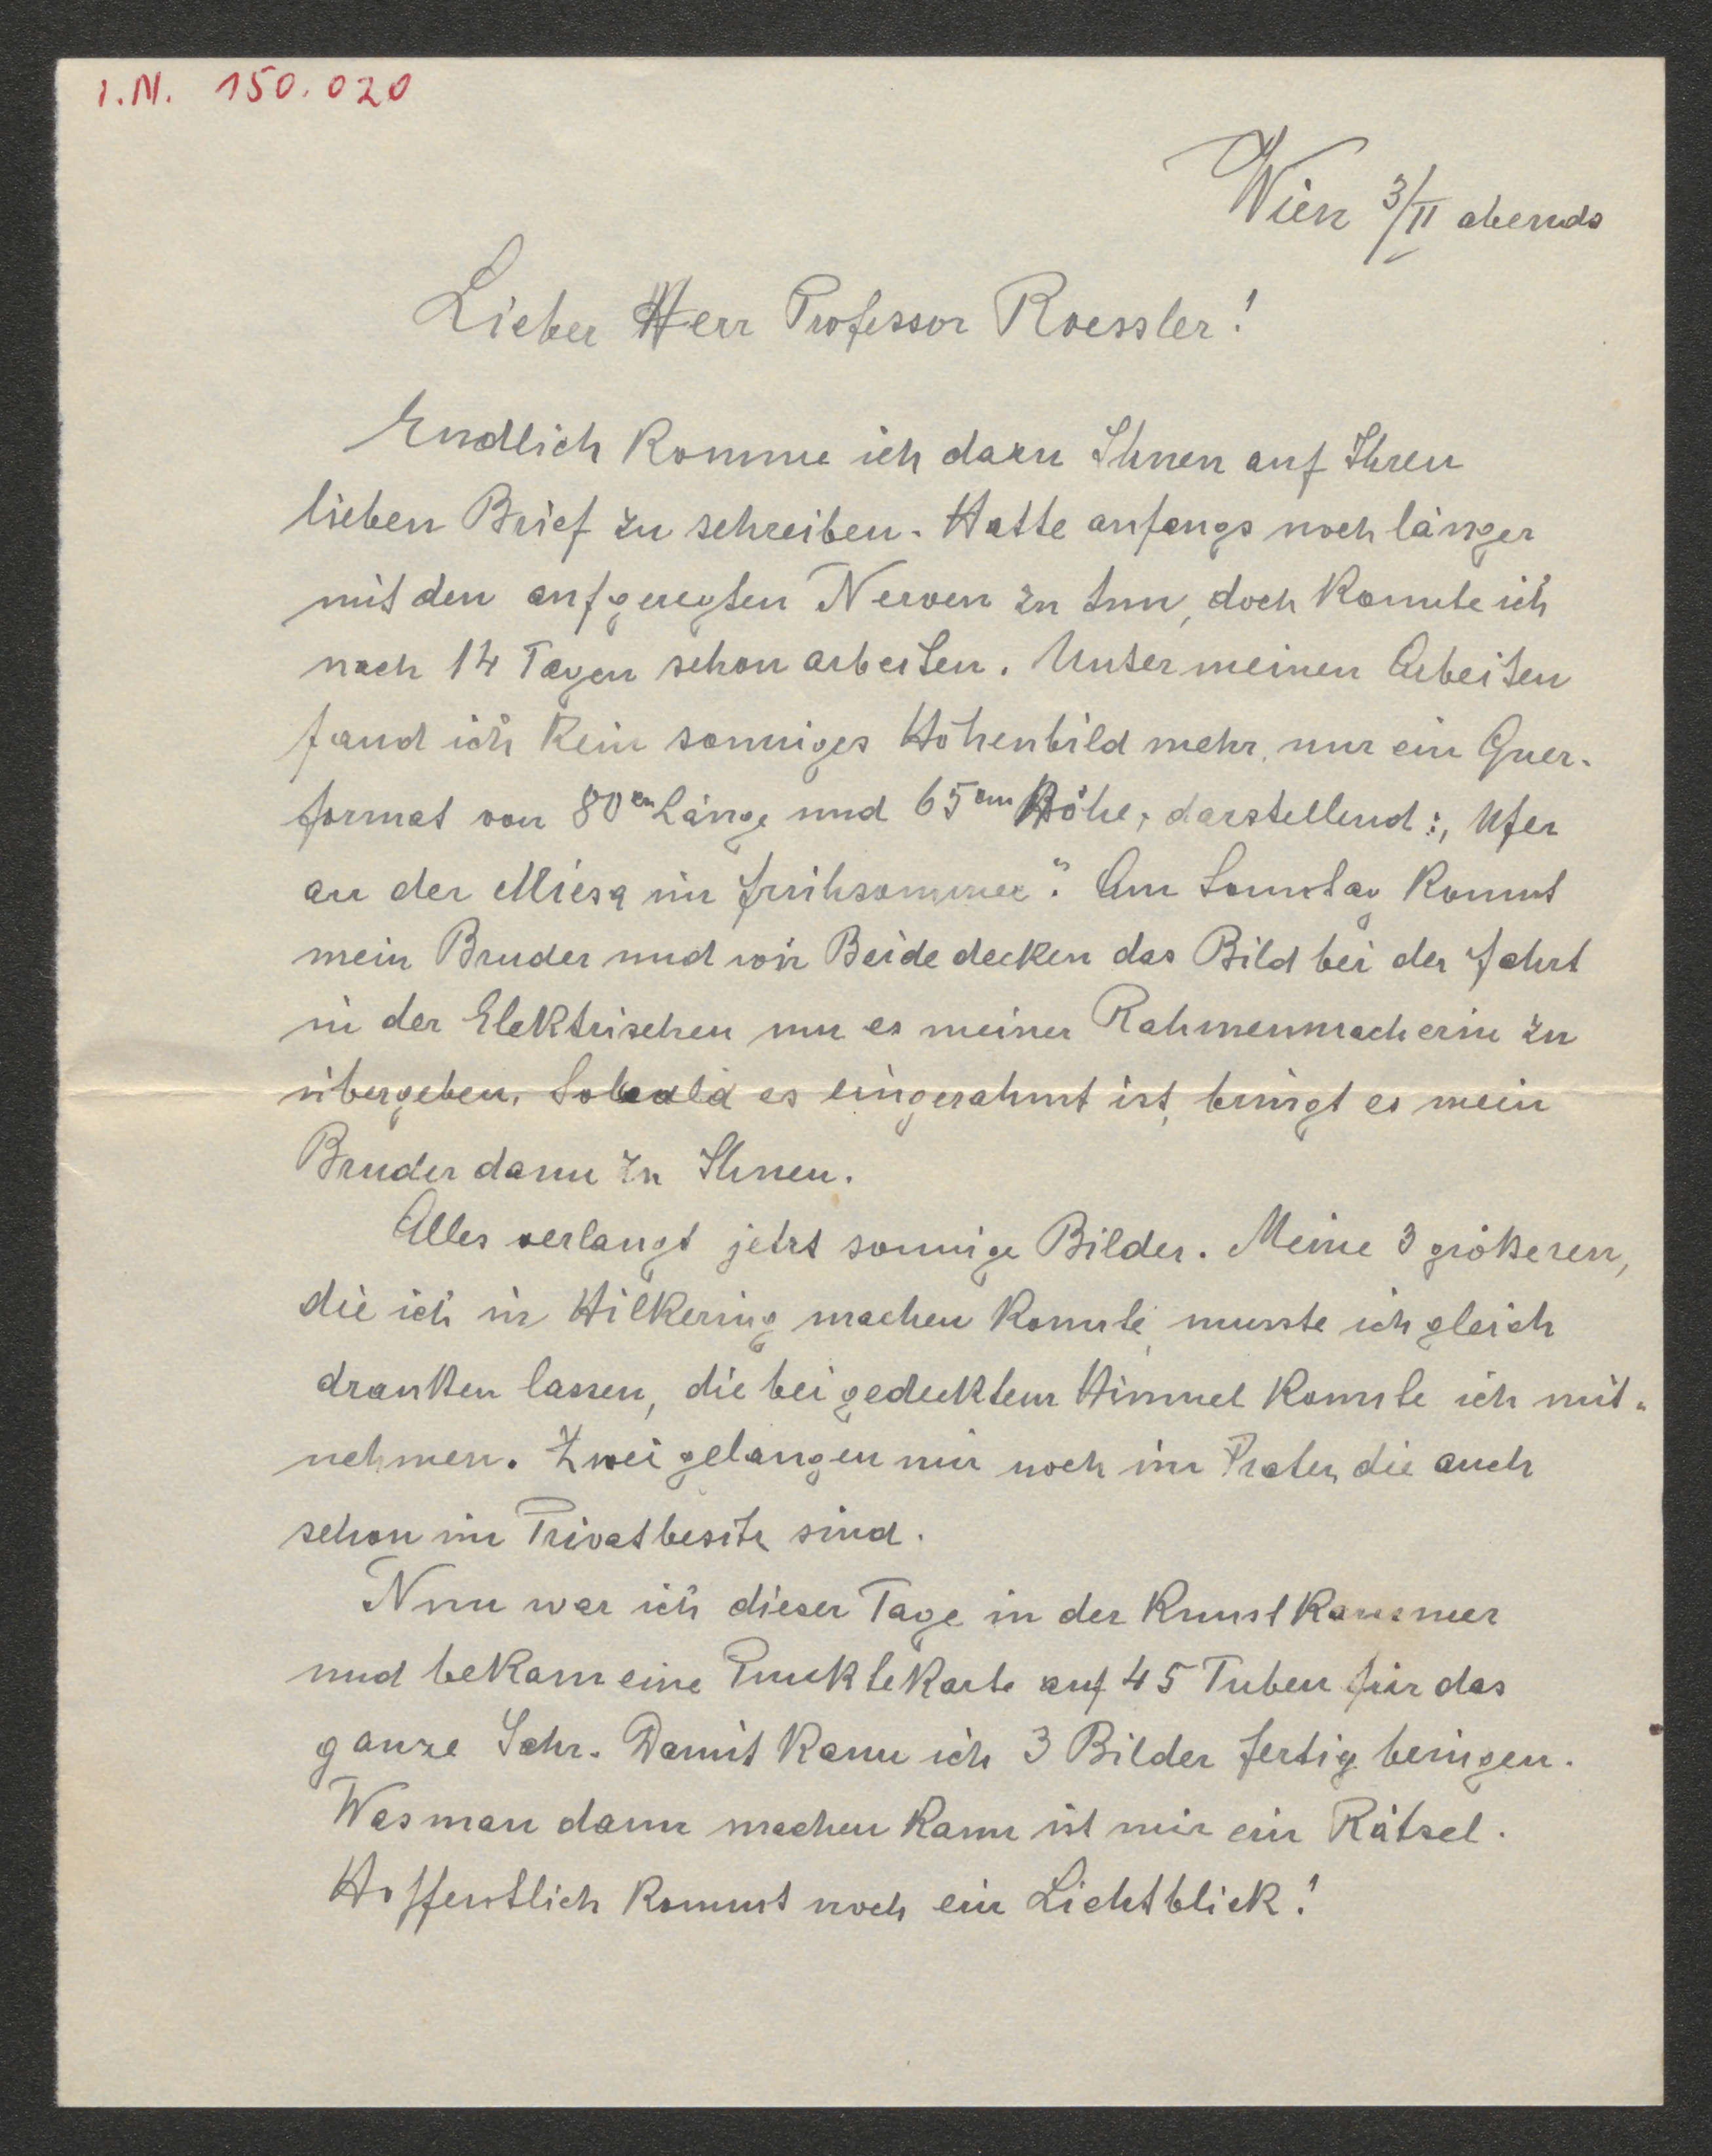 I.N. 150.020
Wien 3/II abends
Lieber Herr Professor Roessler!
Endlich komme ich dazu Ihnen auf Ihren
lieben Brief zu schreiben. Hatte anfangs noch länger
mit den aufgeregten Nerven zu tun, doch konnte ich
nach 14 Tagen schon arbeiten. Unter meinen Arbeiten
fand ich kein sonniges Höhenbild mehr, nur ein Quer-
format von 80cm Länge und 65cm Höhe, darstellend: „Ufer
an der im Frühsommer". Am Samstag kommt
mein Bruder und wir Beide decken das Bild bei der Fahrt
in der Elektrischen um es meiner Rahmenmacherin zu
übergeben. Sobald es eingerahmt ist, bringt es mein
Bruder dann zu Ihnen.
Alles verlangt jetzt sonnige Bilder. Meine 3 größeren,
die ich in Hilkering machen konnte, musste ich gleich
draußen lassen, die bei gedecktem Himmel konnte ich mit-
nehmen. Zwei gelangen mir noch im Prater, die auch
schon im Privatbesitz sind.
Nun war ich dieser Tage in der Kunstkammer
und bekam eine Punktekarte auf 45 Tuben für das
ganze Jahr. Damit kann ich 3 Bilder fertig bringen.
Was man dann machen kann ist mir ein Rätsel.
Hoffentlich kommt noch ein Lichtblick!